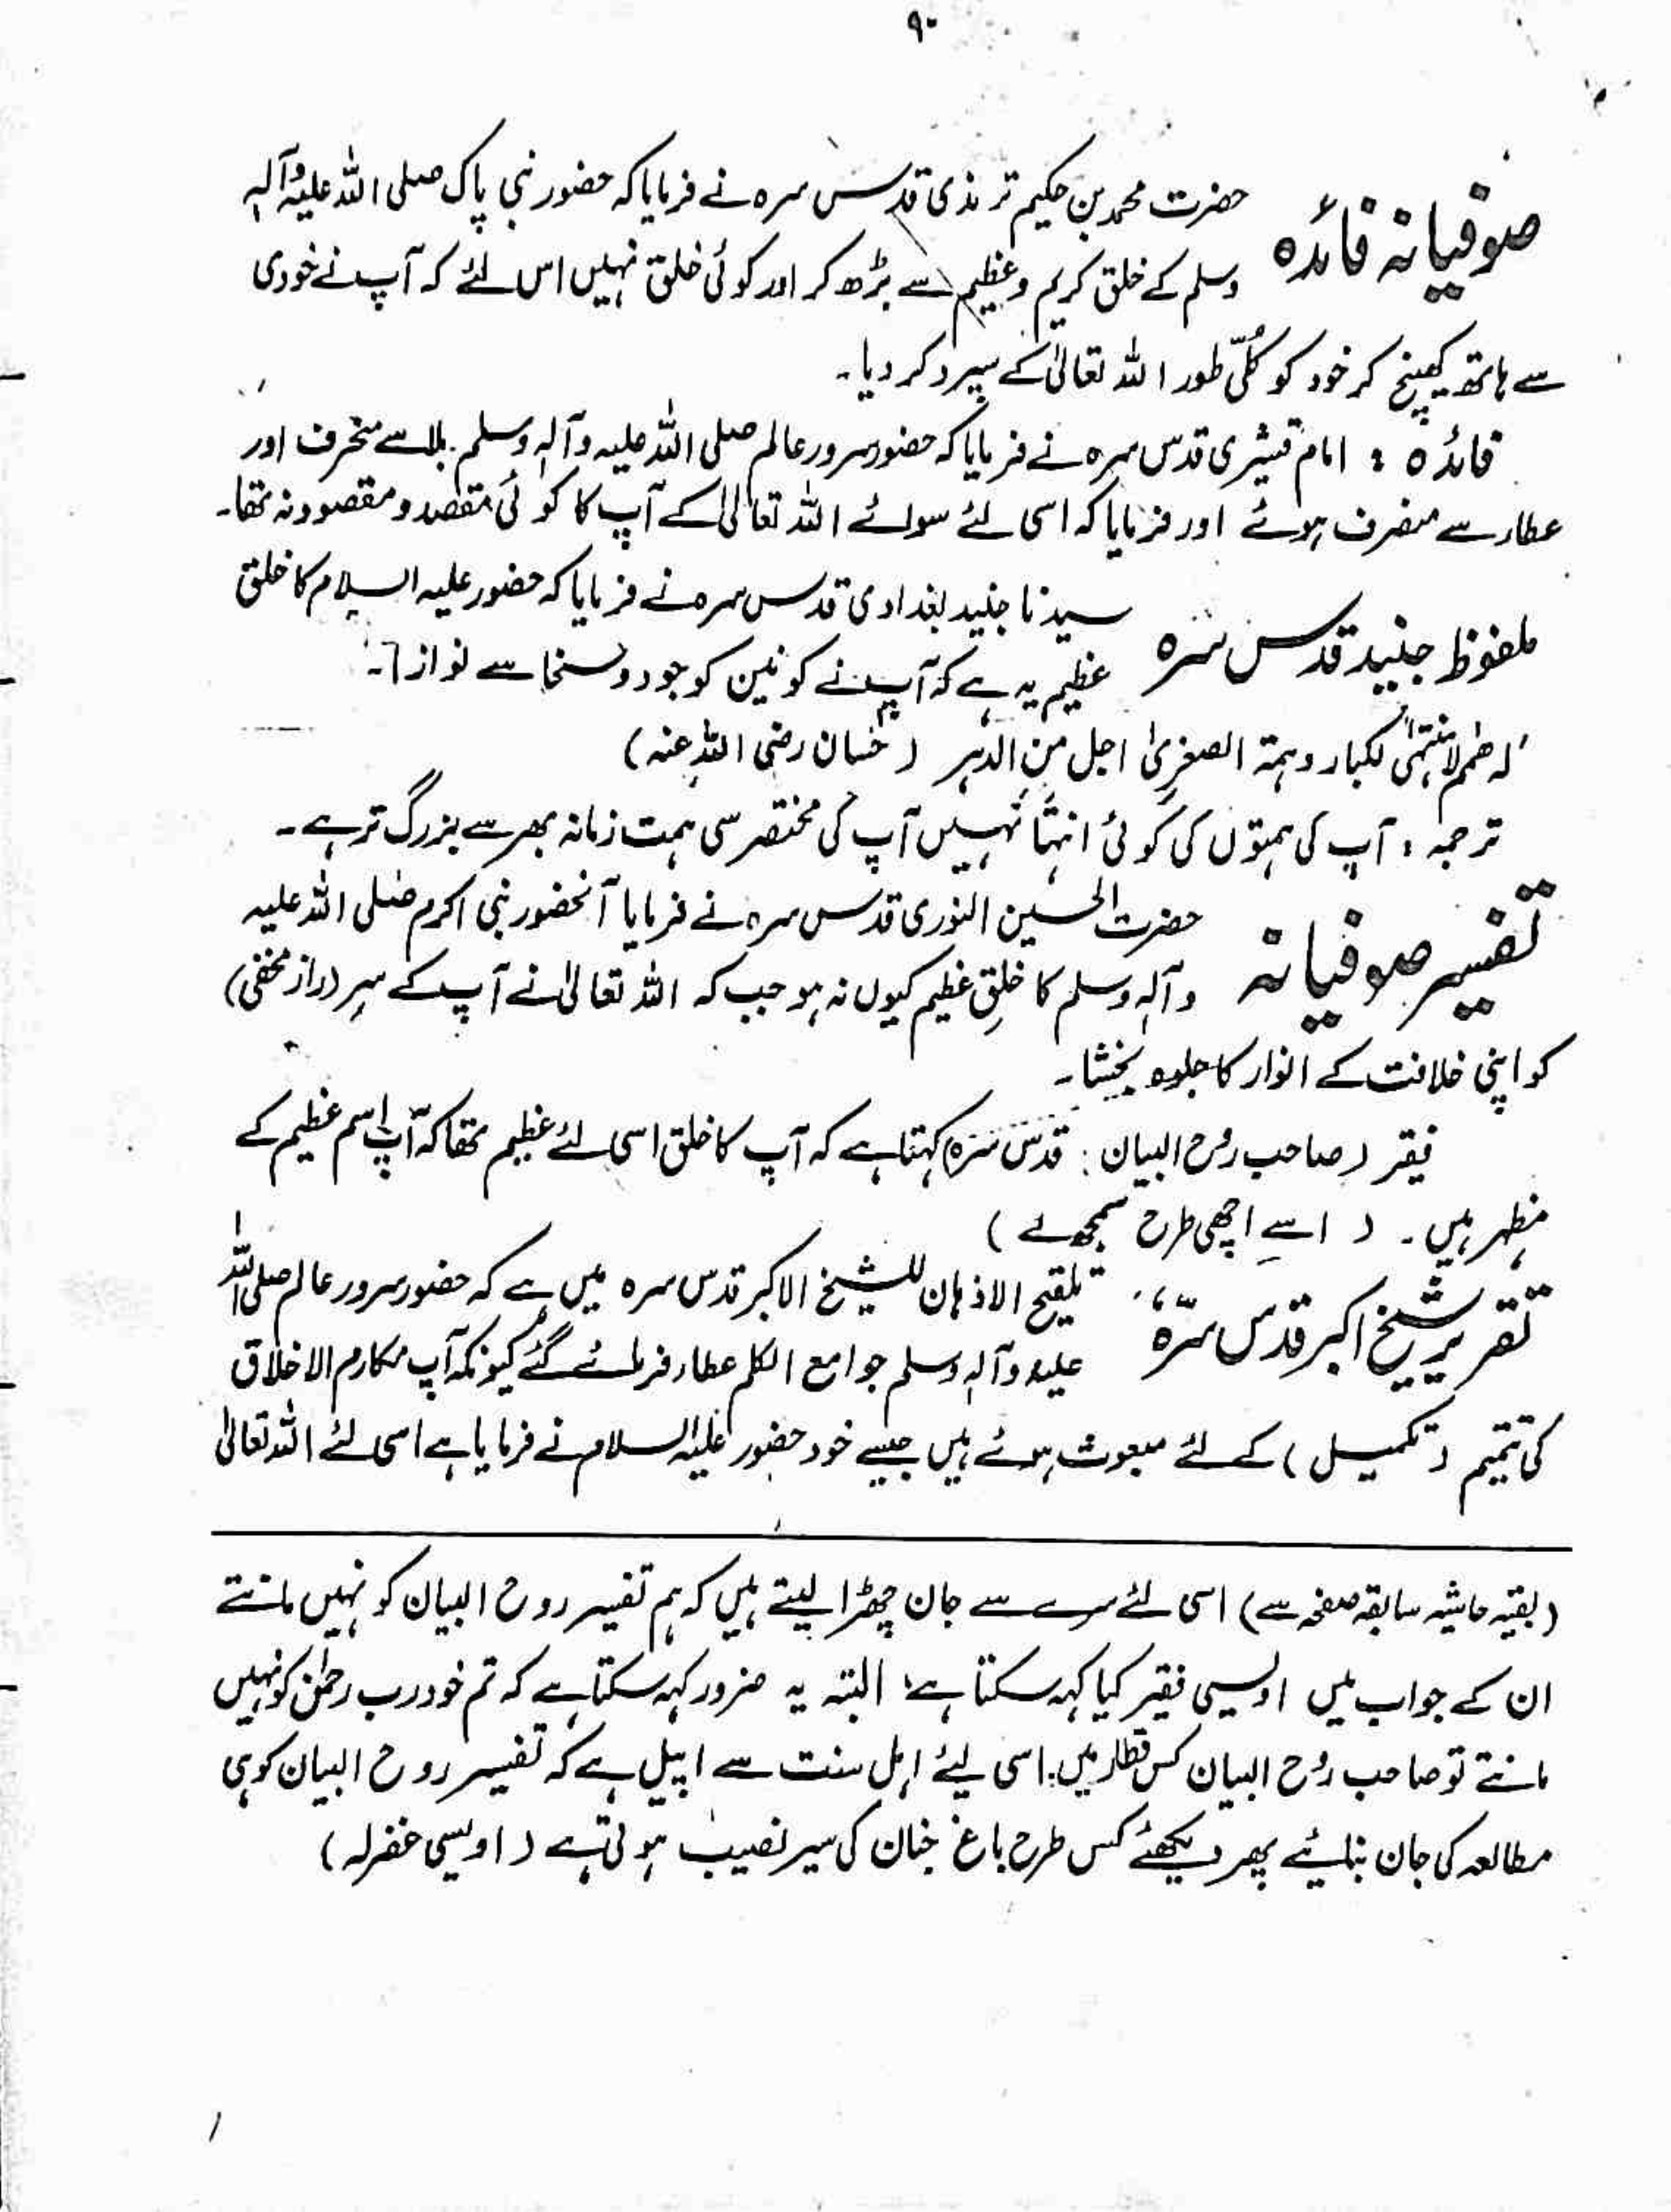 ۹۰
صوفیانہ فائدہ
حضرت محمد بن حکیم ترمذی قدس سرہ نے فرمایا کہ حضور نبی پاک صلی اللہ علیہ وآلہٖ
وسلم کے خلق کریم وعظیم سے بڑھ کر اور کوئی خلق نہیں اس لئے کہ آپ نے خودی
سے ہاتھ کھینچ کر خود کو کُلّی طور اللہ تعالیٰ کے سپرد کر دیا۔
فائدہ : امام قشیری قدس سرہ نے فرمایا کہ حضور سرور عالم صلی اللہ علیہ وآلہٖ وسلم بلا سے منحرف اور
عطاء سے منصرف ہوئے اور فرمایا کہ اسی لئے سوائے اللہ تعالیٰ کے آپ کا کوئی مقصد و مقصود نہ تھا۔
ملفوظ جنید قدس سرہ
سیدنا جنید بغدادی قدس سرہ نے فرمایا کہ حضور علیہ السلام کا خلق
عظیم یہ ہے کہ آپ نے کونین کو جود و سخا سے نوازا۔
لہ ھمم لا منتہیٰ لکبار وہمۃ الصغریٰ اجل من الدہر (حسان رضی اللہ عنہ)
ترجمہ : آپ کی ہمتوں کی کوئی انتہا نہیں آپ کی مختصر سی ہمت زمانہ بھر سے بزرگ تر ہے۔
تفسیر صوفیانہ
حضرت الحسین النوری قدس سرہ نے فرمایا آنحضور نبی اکرم صلی اللہ علیہ
وآلہٖ وسلم کا خلقِ عظیم کیوں نہ ہو جب کہ اللہ تعالیٰ نے آپ کے سِر (راز مخفی)
کو اپنی خلافت کے انوار کا جلوہ بخشا۔
فیقر (صاحب رُوح البیان : قدس سرہ) کہتا ہے کہ آپ کا خلق اسی لئے عظیم تھا کہ آپ اسم عظیم کے
مظہر ہیں۔ (اسے اچھی طرح سمجھ لے)
تقریر شیخ اکبر قدس سرّہٗ
تلقیح الاذہان للشیخ الاکبر قدس سرہ میں ہے کہ حضور سرور عالم صلی اللہ
علیہ وآلہٖ وسلم جوامع الکلم عطاء فرمائے گئے کیونکہ آپ مکارم الاخلاق
کی تتمیم (تکمیل) کے لئے مبعوث ہوئے ہیں جیسے خود حضور علیہ السلام نے فرمایا ہے اسی لئے اللہ تعالیٰ
(بقیہ حاشیہ سابقہ صفحہ سے) اسی لئے سرے سے جان چھڑا لیتے ہیں کہ ہم تفسیر روح البیان کو نہیں مانتے
ان کے جواب میں اویسی فقیر کیا کہہ سکتا ہے، البتہ یہ ضرور کہہ سکتا ہے کہ تم خود رب رحمٰن کو نہیں
مانتے تو صاحب رُوح البیان کس قطار میں۔ اسی لیئے اہل سنت سے اپیل ہے کہ تفسیر روح البیان کو ہی
مطالعہ کی جان بنایئے پھر دیکھئے کس طرح باغ جنان کی سیر نصیب ہوتی ہے (اویسی غفرلہ)